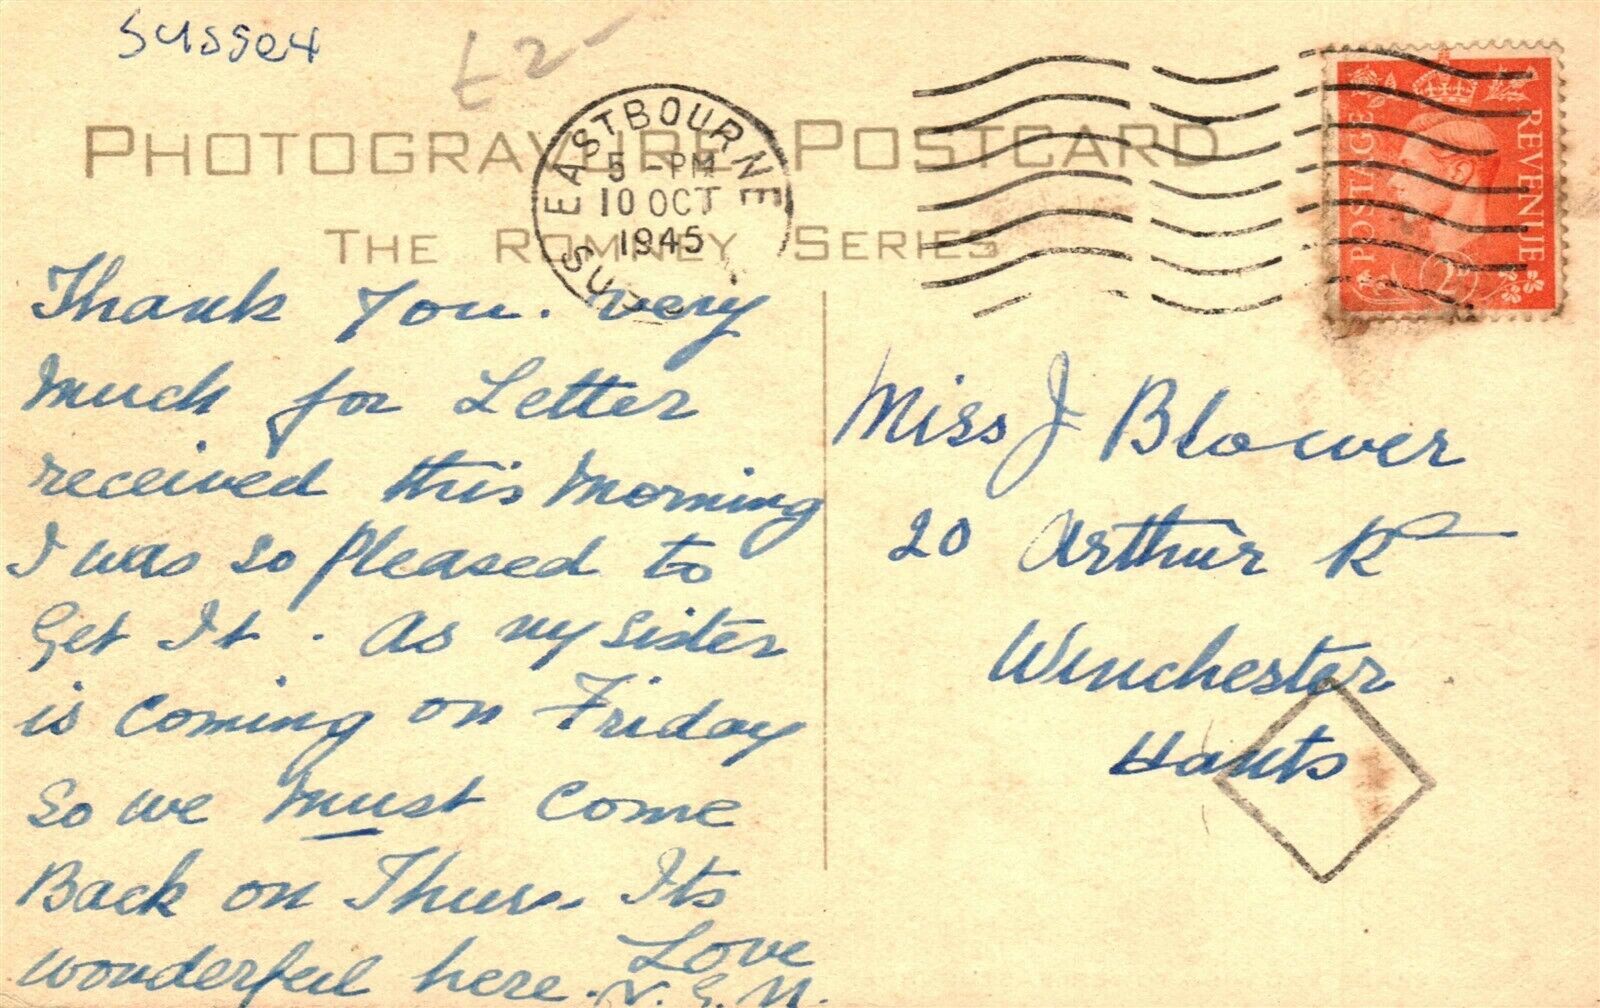 Sussex
£2-
PHOTOGRAVURE POSTCARD
THE ROMNEY SERIES
EASTBOURNE
5 - PM
10 OCT
1945
SUS
POSTAGE
REVENUE
2D
Thank You. very
Much for Letter
received this Morning
I was so Pleased to
Get It. As my Sister
is Coming on Friday
So we Must Come
Back on Thurs. Its
wonderful here.
Love
Miss J Blower
20 Arthur Rd
Winchester
Hants